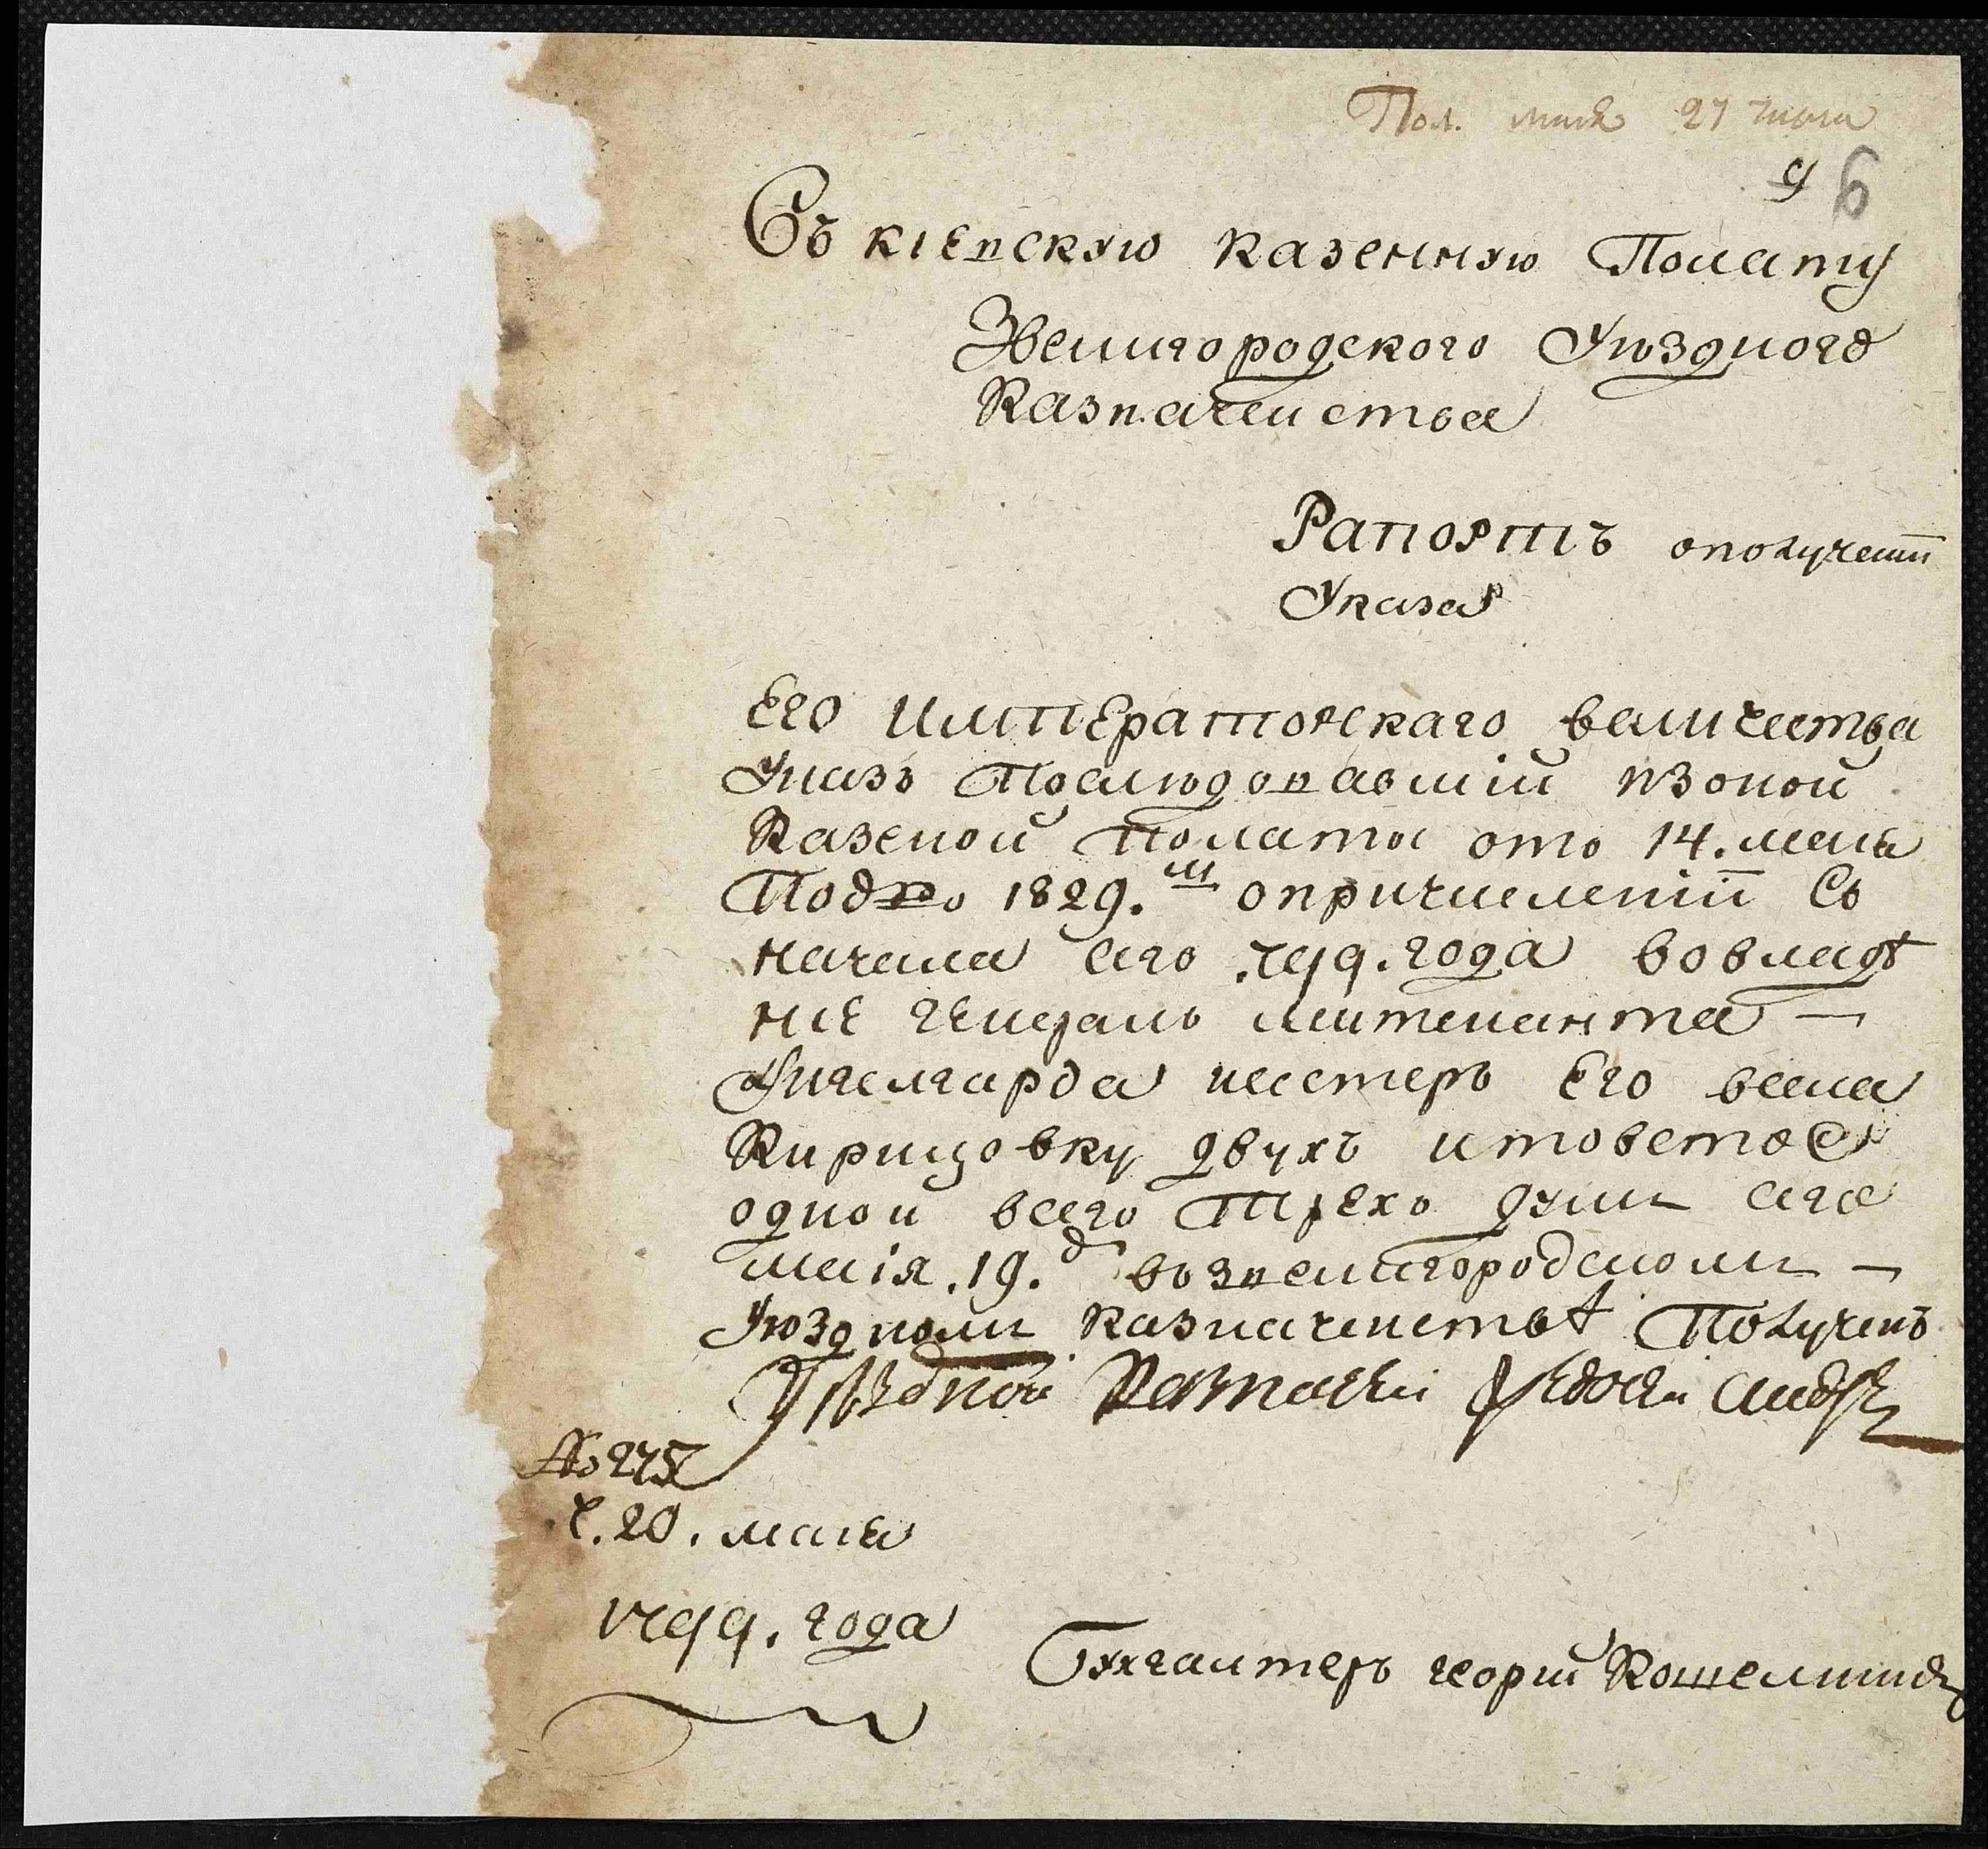 Пол. маія 27 числа
9 6
Въ кіевскую казенную Полату
Звенигородского Уѣздного
Казначейства
Рапортъ ополученіи
Указа
Его императорскаго величества
Указъ Последовавшій изоной
Казеной Полаты отъ 14. маія
Подъ № 1829.м опричислениіи Съ
начала сего 799. года вовладѣ
ние генералъ лейтенанта —
Енгелгарда
Кирилловку двухъ
одной всего Трехъ душъ сего
маія. 19.д возвенигородскомъ —
Уѣздномъ казначействѣ Полученъ
Уѣздной Казначей Федосей
№ 275
Ч. 20. маія
1799. года
Бухгалтеръ георгий